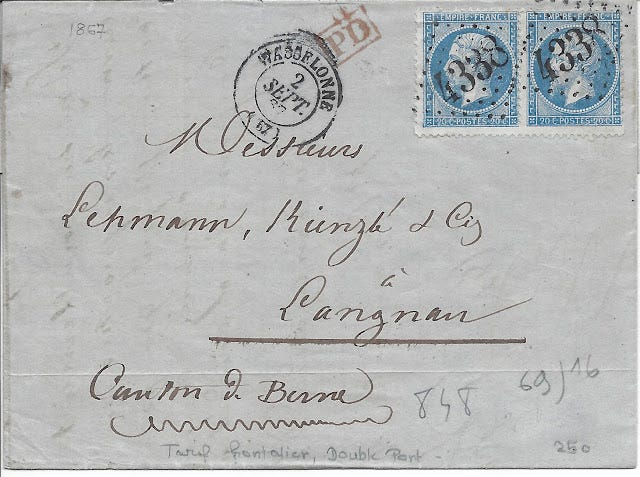 1867
WASSELONNE
2
SEPT.
67
(67)
PD
EMPIRE FRANC
4338
20 C POSTES 20 C
EMPIRE FRANC
4338
20 C POSTES 20 C
Messieurs
Lehmann, Künzlé & Cie
à
Langnau
Canton de Berne
848
69) 16
Tarif frontalier, Double Port -
250